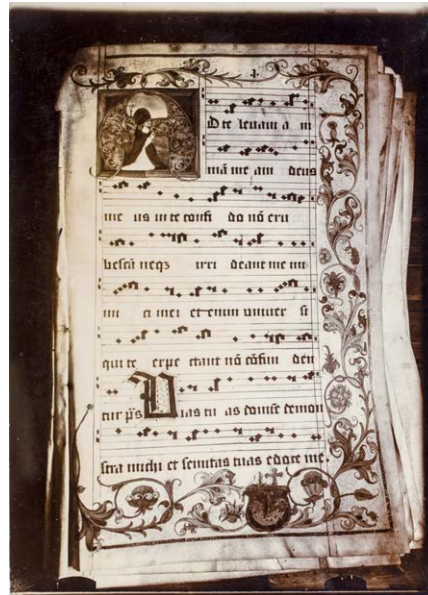 AD te leuaui a ni
mā me am deus
me us in te confi do nō eru
bescā neqz irri deant me ini
mi ci mei et enim uniuer si
qui te expe ctant nō cōfun den
tur p̄s Vias tu as domine demon
stra michi et semitas tuas edoce me.